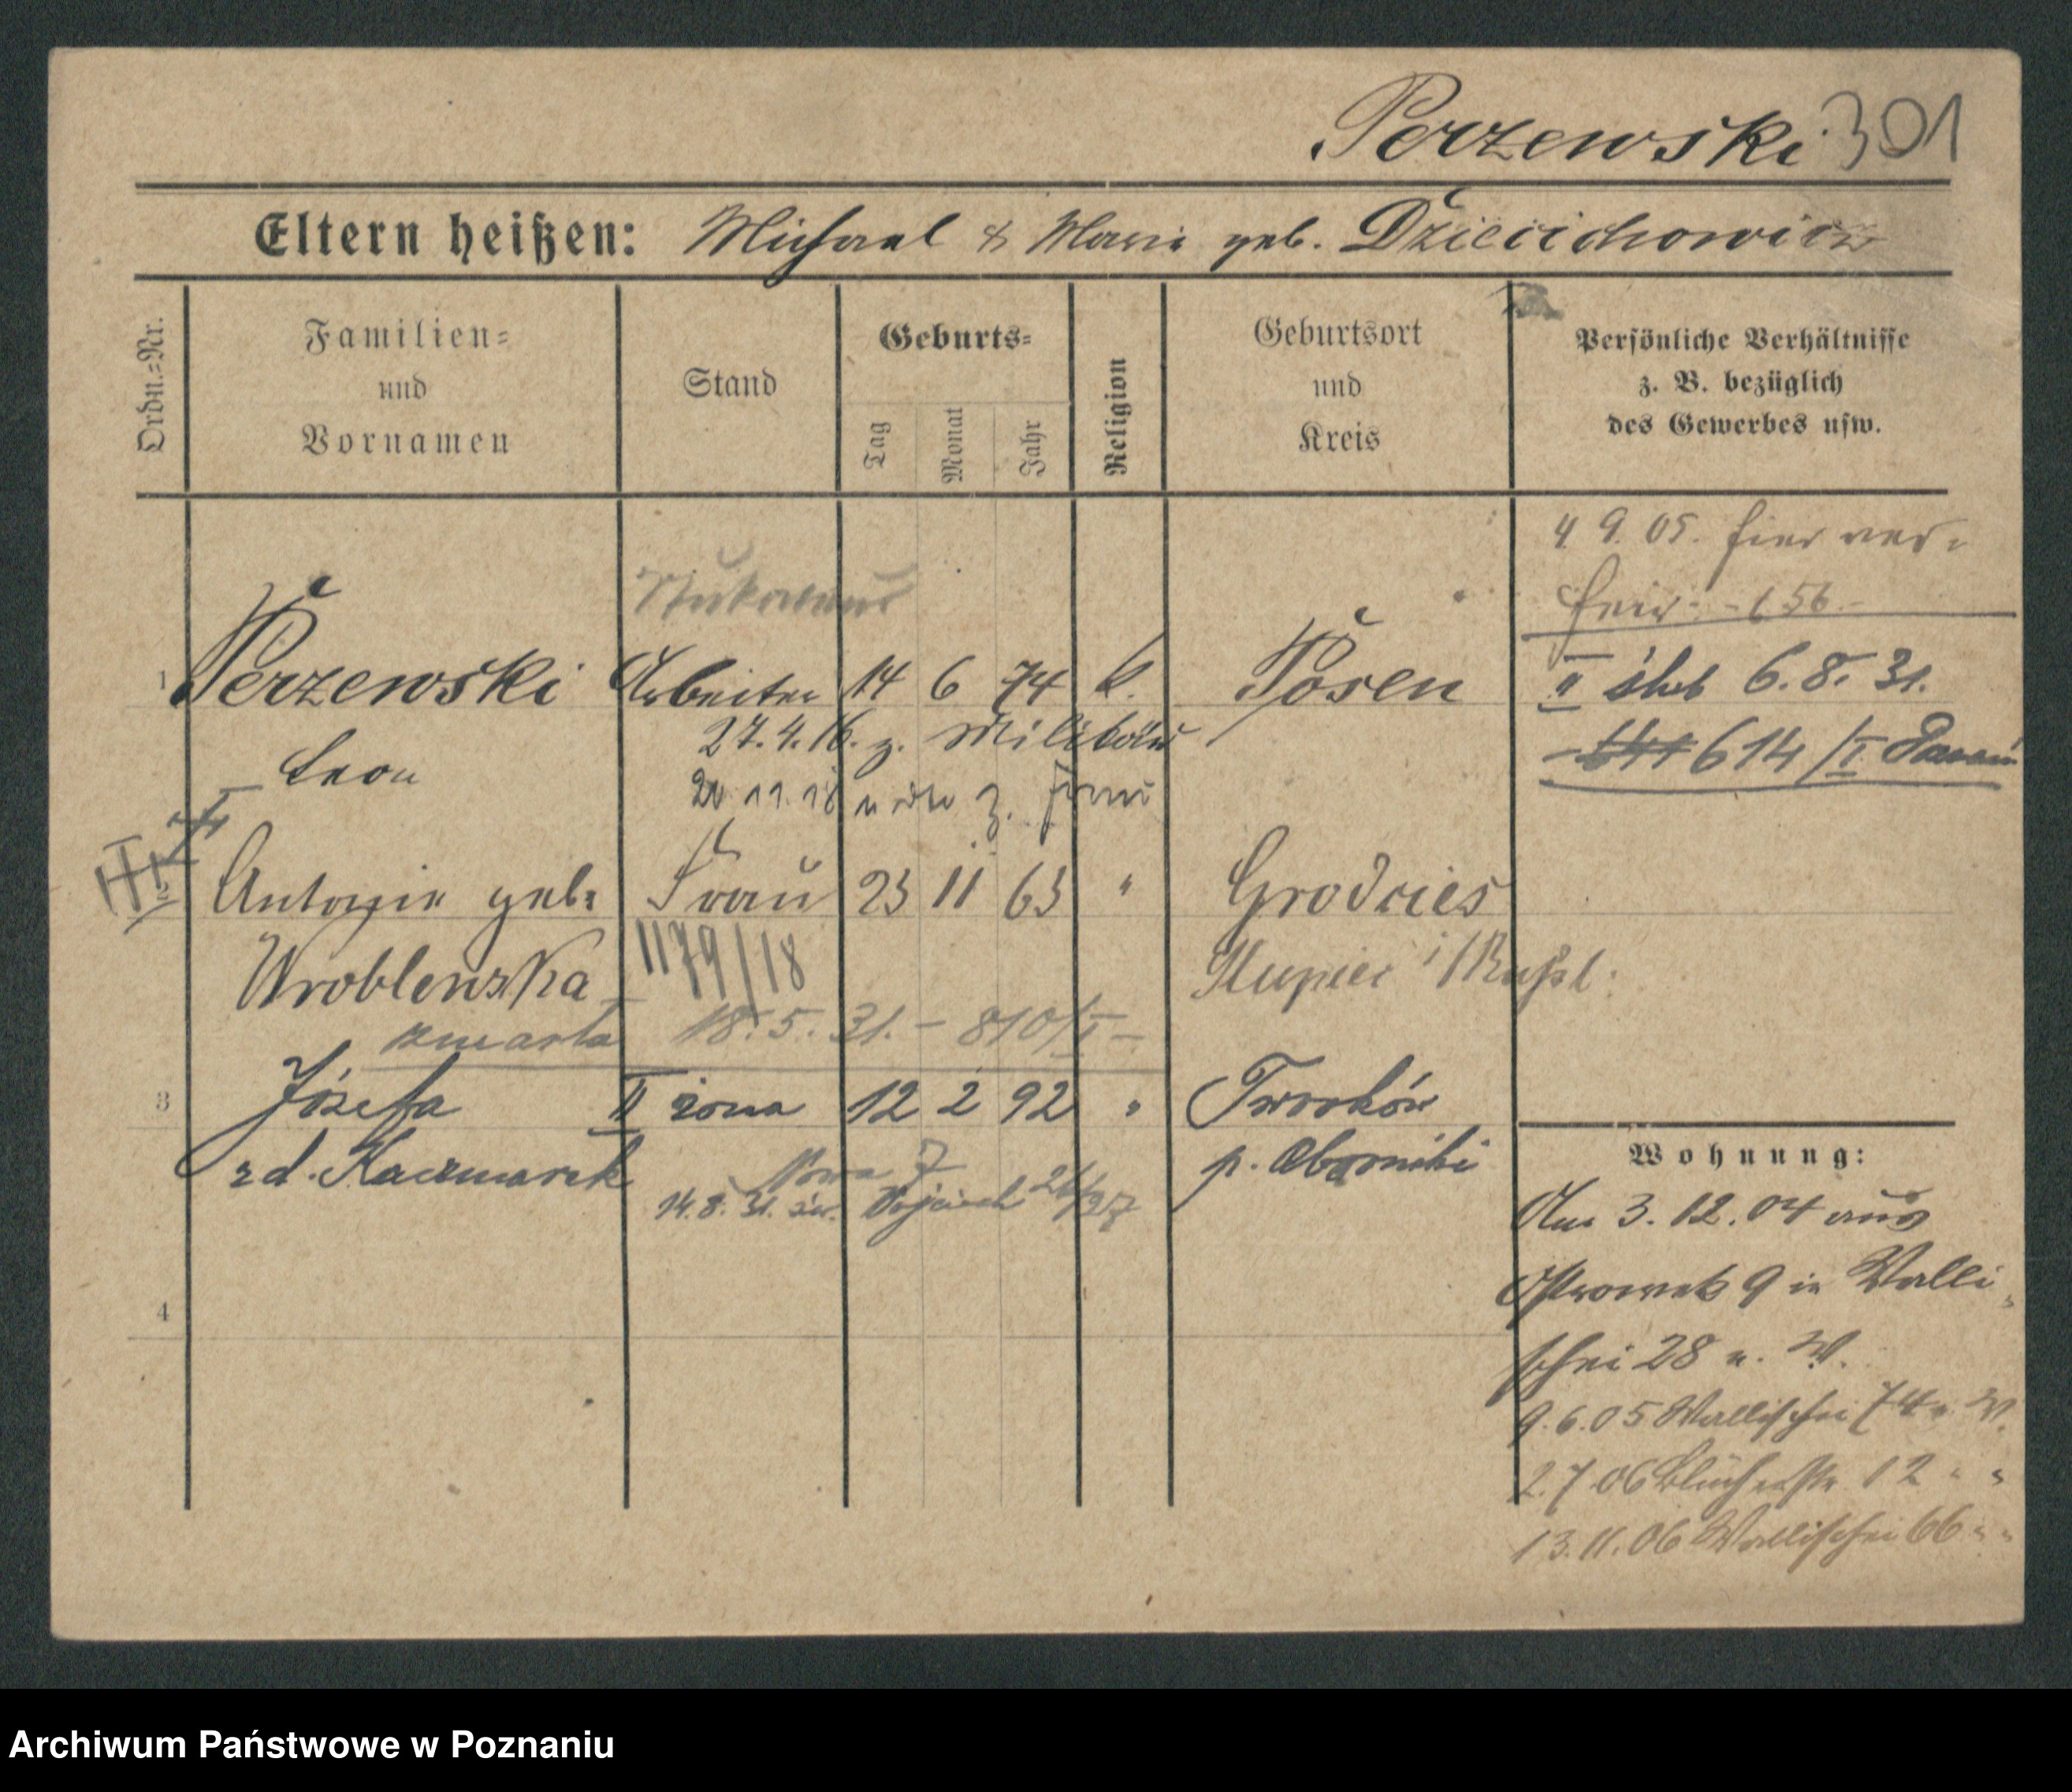 Perzewski 301
Eltern heißen: Michael & Marie geb.
Ordn.=Nr.
Familien=
und
Vornamen
Stand
Geburts=
Tag
Monat
Jahr
Religion
Geburtsort
und
Kreis
Persönliche Verhältnisse
z. B. bezüglich
des Gewerbes usw.
4 9. 05. hier ver=
heir. - 656.-
1 Perzewski Arbeiter 14 6 74 k. Posen
II ślub 6. 8. 31.
614/I Poznań
Leon
27. 4. 16. z. Militär
20 11. 18
2 Antonie geb. Frau 23 11 63 " Grodzies
Wroblewska 1179/18
Kupiec /Rußl.
zmarła 18. 5. 31. - 810/I -
3 Józefa II żona 12 2 92 "
zd. Kaczmarek p. Oborniki
Nowa 7
14. 8. 31. św. Wojciech
Wohnung:
Am 3. 12. 04 aus
Ostrowek 9 in Walli
schei 28 n. W.
9. 6. 05 Wallischei 74 n. W.
2. 7. 06 Blücherstr 12 " "
13. 11. 06 Wallischei 66 " "
4
Archiwum Państwowe w Poznaniu